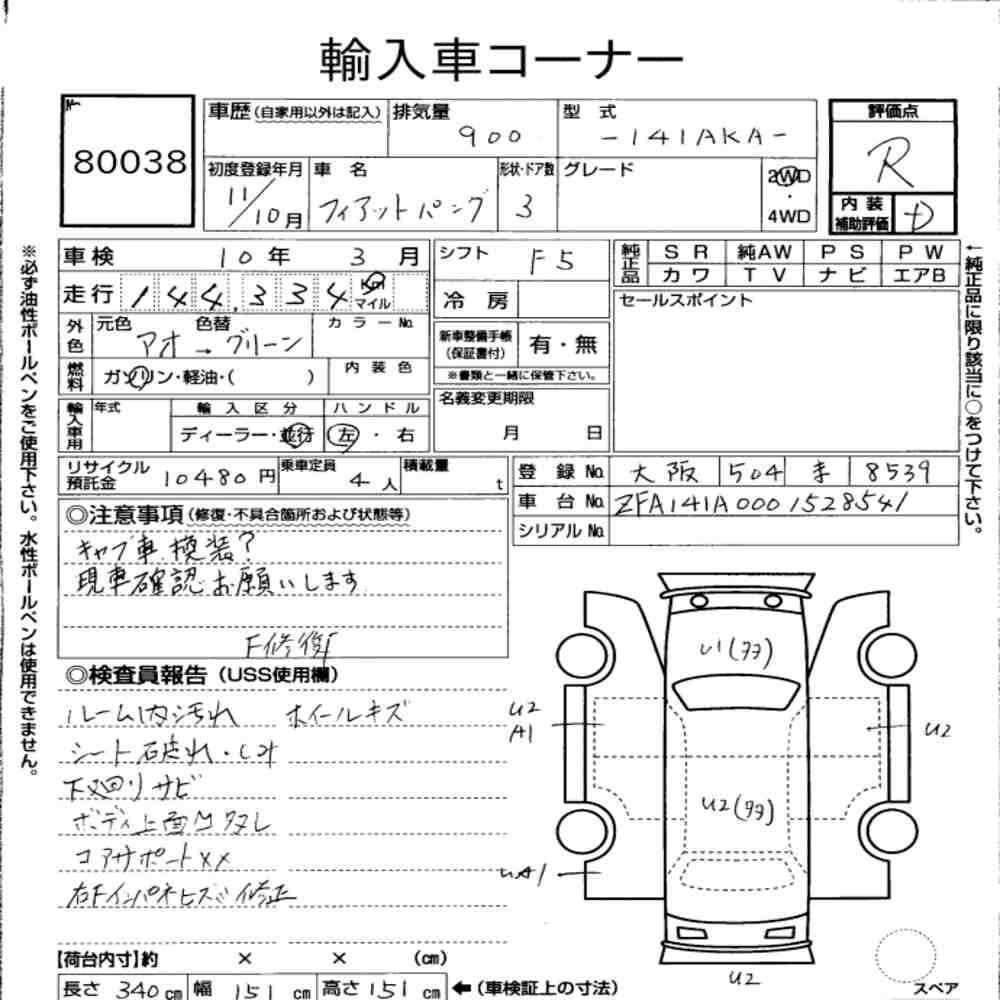 輸入車コーナー
№
80038
車歴(自家用以外は記入) 排気量 900 型式 -141AKA-
評価点
R
初度登録年月 11/10月 車名 フィアットパンダ 形状・ドア数 3 グレード 2WD・4WD
内装補助評価 D
車検 10年 3月
シフト F5
純正品 SR 純AW PS PW
カワ TV ナビ エアB
走行 144,334 Km マイル
冷房
セールスポイント
外色 元色 色替 カラーNo.
アオ→グリーン
新車整備手帳(保証書付) 有・無
※書類と一緒に保管下さい。
燃料 ガソリン・軽油・( ) 内装色
名義変更期限
月 日
輸入車用 年式 輸入区分 ハンドル
ディーラー・並行 左・右
リサイクル預託金 10480円 乗車定員 4人 積載量 t
登録No. 大阪 504 ま 8539
車台No. ZFA141A0001528541
シリアルNo.
◎注意事項(修復・不具合箇所および状態等)
キャブ車 換装?
現車確認お願いします
F修復
◎検査員報告(USS使用欄)
ルーム内汚れ ホイールキズ
シート破れ・
下廻りサビ
ボディ上面
コアサポートXX
右Fインパネヒズミ修正
U1(タタ)
U2
A1
U2
U2(タタ)
A1
U2
スペア
【荷台内寸】約 × × (cm)
長さ 340cm 幅 151cm 高さ 151cm ←(車検証上の寸法)
※必ず油性ボールペンをご使用下さい。水性ボールペンは使用できません。
←純正品に限り該当に○をつけて下さい。